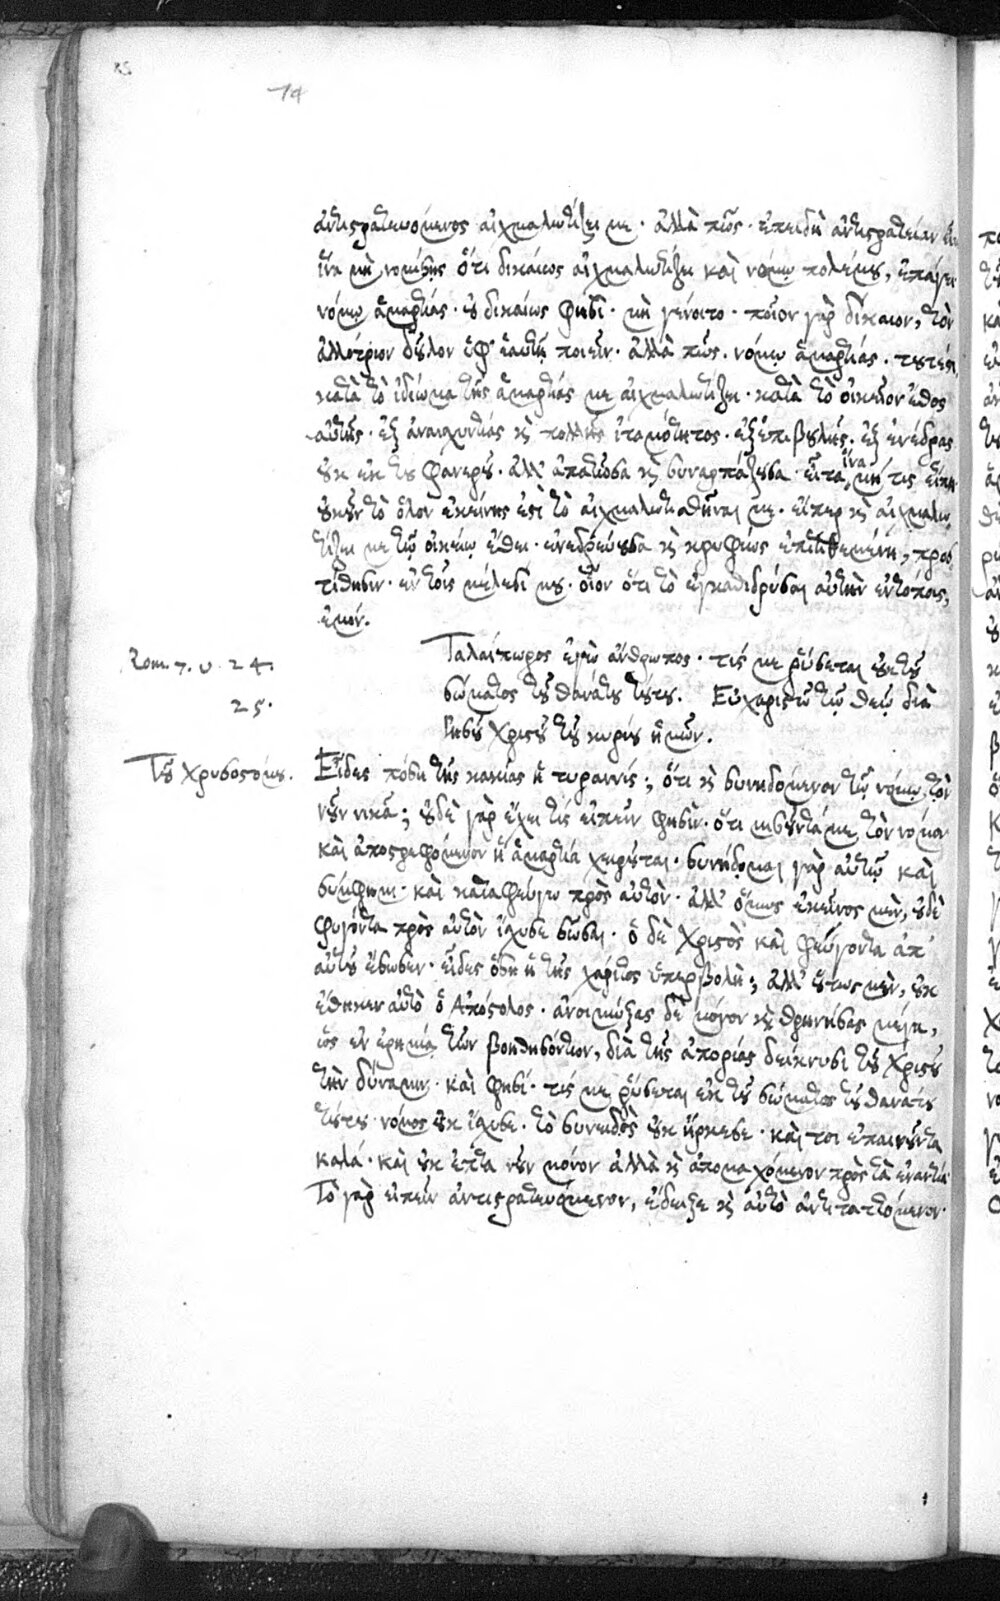 74
ἀντιστρατευόμενος αἰχμαλωτίζει με· ἀλλὰ πῶς· ἐπειδὴ ἀντιστρατείαν
ἵνα μὴ νομίσῃς ὅτι δικαίως αἰχμαλωτίζει καὶ νόμῳ πολέμου, ἐπάγει
νόμῳ ἁμαρτίας· οὐ δικαίως φησί· μὴ γένοιτο· ποῖον γὰρ δίκαιον, τὸν
ἀλλότριον δοῦλον ἐφ' ἑαυτῇ ποιεῖν· ἀλλὰ πῶς· νόμῳ ἁμαρτίας· τουτέστι
κατὰ τὸ ἰδίωμα τῆς ἁμαρτίας με αἰχμαλωτίζει· κατὰ τὸ οἰκεῖον ἔθος
αὐτῆς· ἐξ ἀναισχυντίας κ̀ πολλῆς ἰταμότητος· ἐξ ἐπιβουλῆς· ἐξ ἐνέδρας
οὐκ ἐκ τοῦ φανεροῦ· ἀλλ' ἀπατῶσα κ̀ συναρπάζουσα· εἶτα ἵνα μή τις εἴπῃ
οὐκοῦν τὸ ὅλον ἐκείνης ἐστὶ τὸ αἰχμαλωτισθῆναί με· εἴπερ κ̀ αἰχμαλω
τίζει με τῷ οἰκείῳ ἔθει· ἐνεδρεύουσα κ̀ κρυφίως ἐπιτιθεμένη, προσ
τίθησιν· ἐν τοῖς μέλεσί μου· οἷον ὅτι τὸ ἐγκαθιδρύσαι αὐτὴν ἐντόπως,
ἐμόν.
Rom. 7. υ. 24. Ταλαίπωρος ἐγὼ ἄνθρωπος· τίς με ῥύσεται ἐκ τοῦ
25. σώματος τοῦ θανάτου τούτου. Εὐχαριστῶ τῷ θεῷ διὰ
Ἰησοῦ Χριστοῦ τοῦ κυρίου ἡμῶν.
Τοῦ Χρυσοστόμου. Εἶδες πόση τῆς κακίας ἡ τυραννίς; ὅτι κ̀ συνηδόμενον τῷ νόμῳ τὸν
νοῦν νικᾷ; οὐδὲ γὰρ ἔχει τις εἰπεῖν φησὶν· ὅτι μισοῦντά με τὸν νόμον
καὶ ἀποστρεφόμενον ἡ ἁμαρτία χειροῦται· συνήδομαι γὰρ αὐτῷ καὶ
σύμφημι· καὶ καταφεύγω πρὸς αὐτόν· ἀλλ' ὅμως ἐκεῖνος μὲν, οὐδὲ
φυγόντα πρὸς αὐτὸν ἴσχυσε σῶσαι· ὁ δὲ Χριστὸς καὶ φεύγοντα ἀπ'
αὐτοῦ ἔσωσεν· εἶδες ὅση ἡ τῆς χάριτος ὑπερβολή; ἀλλ' οὕτως μὲν, οὐκ
ἔθηκεν αὐτὸ ὁ Ἀπόστολος· ἀνοιμώξας δὲ μόνον κ̀ θρηνήσας μέγα,
ὡς ἐν ἐρημίᾳ τῶν βοηθησόντων, διὰ τῆς ἀπορίας δείκνυσι τοῦ Χριστοῦ
τὴν δύναμιν· καὶ φησί· τίς με ῥύσεται ἐκ τοῦ σώματος τοῦ θανάτου
τούτου· νόμος οὐκ ἴσχυσε· τὸ συνειδὸς οὐκ ἤρκεσε· καί τοι ἐπαινοῦντα
καλά· καὶ οὐκ ἐπαινοῦν μόνον ἀλλὰ κ̀ ἀπομαχόμενον πρὸς τὰ ἐναντία·
Τὸ γὰρ εἰπεῖν ἀντιστρατευόμενον, ἔδειξε κ̀ αὐτὸ ἀντιταττόμενον·